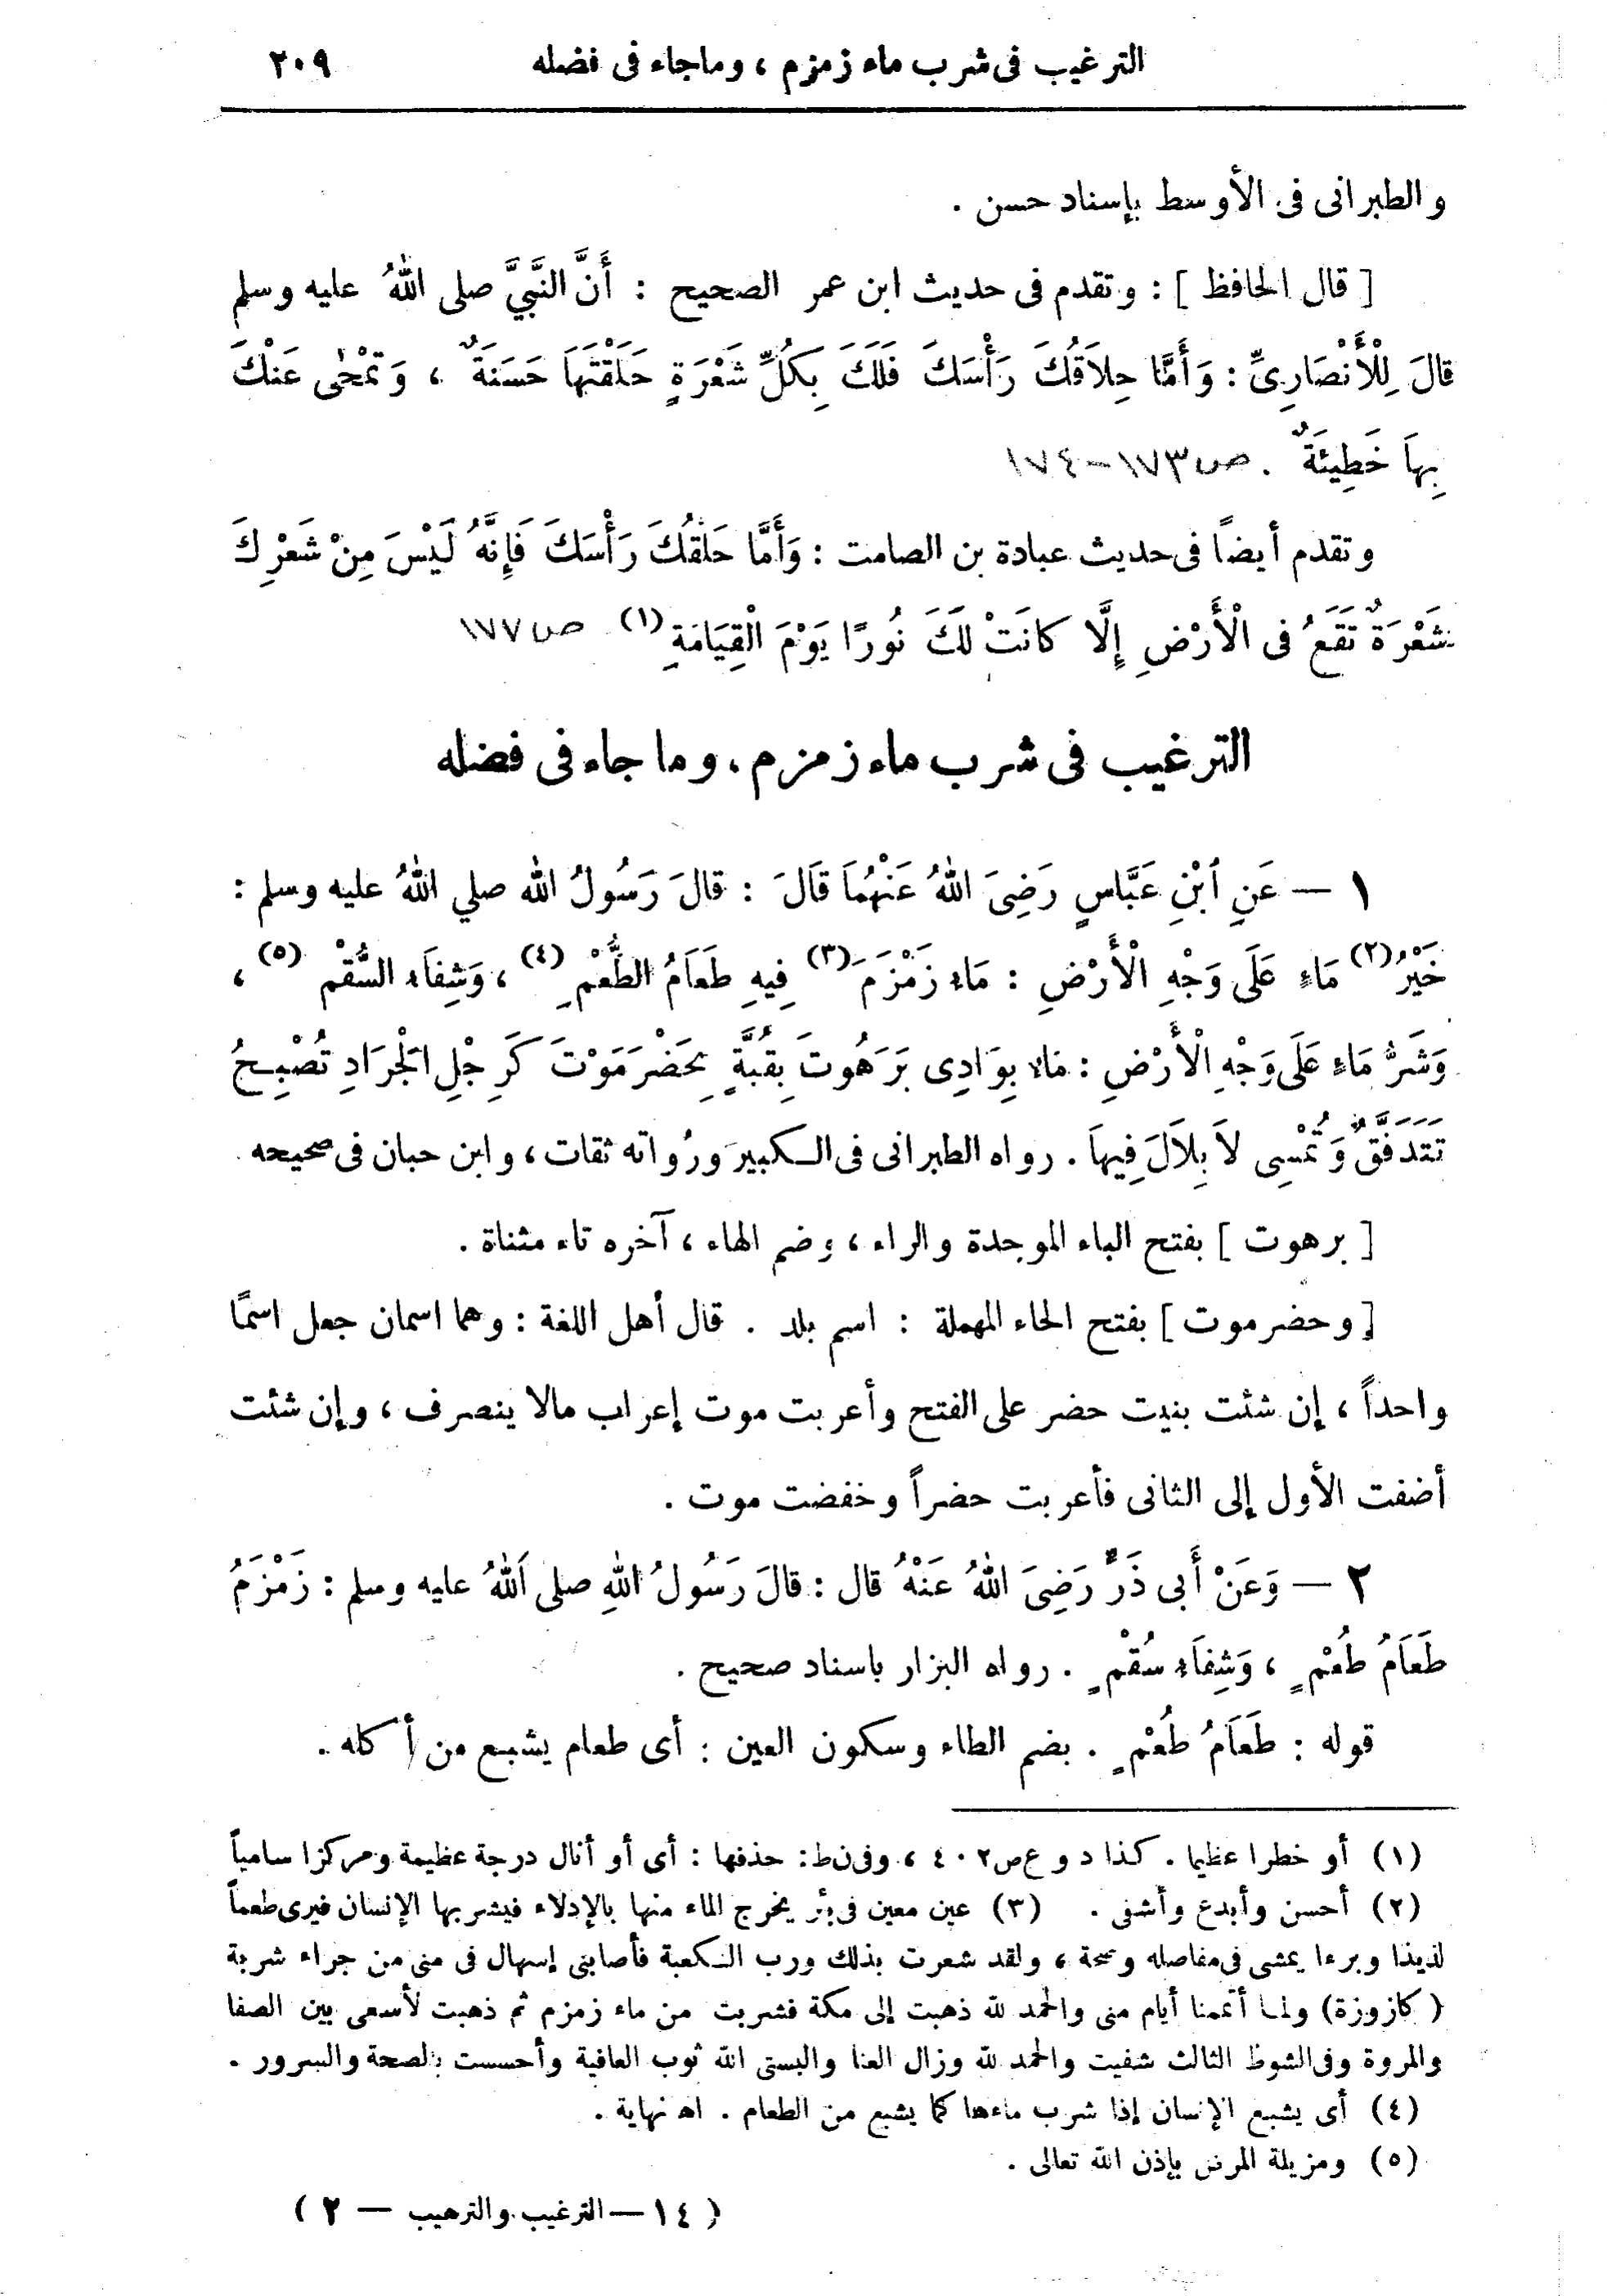 الترغيب فى شرب ماء زمزم ، وما جاء فى فضله ٢٠٩
والطبرانى فى الأوسط بإسناد حسن .
[ قال الحافظ ] : وتقدم فى حديث ابن عمر الصحيح : أَنَّ النَّبِيَّ صلى اللهُ عليه وسلم
قالَ لِلْأَنْصَارِىِّ : وَأَمَّا حِلاَقُكَ رَأْسَكَ فَلَكَ بِكُلِّ شَعْرَةٍ حَلَقْتَهَا حَسَنَةٌ ، وَتُمْحٰى عَنْكَ
بِهَا خَطِيئَةٌ . ص ١٧٣-١٧٤
وتقدم أيضاً فى حديث عبادة بن الصامت : وَأَمَّا حَلْقُكَ رَأْسَكَ فَإِنَّهُ لَيْسَ مِنْ شَعْرِكَ
شَعْرَةٌ تَقَعُ فى الْأَرْضِ إِلَّا كانَتْ لَكَ نُورًا يَوْمَ الْقِيَامَةِ (١) ص ١٧٧
الترغيب فى شرب ماء زمزم ، وما جاء فى فضله
١ — عَنِ ابْنِ عَبَّاسٍ رَضِىَ اللهُ عَنْهُمَا قَالَ : قالَ رَسُولُ الله صلي اللهُ عليه وسلم :
خَيْرُ (٢) مَاءٍ عَلَى وَجْهِ الْأَرْضِ : مَاءُ زَمْزَمَ (٣) فِيهِ طَعَامُ الطُّعْمِ (٤) ، وَشِفَاءُ السُّقْمِ (٥) ،
وَشَرُّ مَاءٍ عَلَى وَجْهِ الْأَرْضِ : مَاءٌ بِوَادِى بَرَهُوتَ بِقُبَّةٍ بِحَضْرَمَوْتَ كَرِجْلِ الْجَرَادِ تُصْبِحُ
تَتَدَفَّقُ وَتُمْسِى لاَ بِلاَلَ فِيهاَ . رواه الطبرانى فى الكبير ورُواته ثقات ، وابن حبان فى صحيحه .
[ برهوت ] بفتح الباء الموحدة والراء ، وضم الهاء ، آخره تاء مثناة .
[ وحضرموت ] بفتح الحاء المهملة : اسم بلد . قال أهل اللغة : وهما اسمان جعل اسمًا
واحداً ، إن شئت بنيت حضر على الفتح وأعربت موت إعراب مالا ينصرف ، وإن شئت
أضفت الأول إلى الثانى فأعربت حضراً وخفضت موت .
٢ — وَعَنْ أَبى ذَرٍّ رَضِىَ اللهُ عَنْهُ قال : قالَ رَسُولُ اللهِ صلى اللهُ عليه وسلم : زَمْزَمُ
طَعَامُ طُعْمٍ ، وَشِفَاءُ سُقْمٍ . رواه البزار باسناد صحيح .
قوله : طَعَامُ طُعْمٍ . بضم الطاء وسكون العين : أى طعام يشبع من أكله .
(١) أو خطرا عظيما . كذا د و ع ص ٤٠٢ ، وفى ن ط : حذفها : أى أو أنال درجة عظيمة ومركزا سامياً
(٢) أحسن وأبدع وأشفى . (٣) عين معين فى بئر يخرج الماء منها بالإدلاء فيشربها الإنسان فيرى طعماً
لذيذا وبرءا يمشى فى مفاصله وصحة ، ولقد شعرت بذلك ورب الكعبة فأصابنى إسهال فى منى من جراء شربة
( كازوزة ) ولما أتممنا أيام منى والحمد لله ذهبت إلى مكة فشربت من ماء زمزم ثم ذهبت لأسعى بين الصفا
والمروة وفى الشوط الثالث شفيت والحمد لله وزال العنا والبسنى الله ثوب العافية وأحسست بالصحة والسرور .
(٤) أى يشبع الإنسان إذا شرب ماءها كما يشبع من الطعام . اه نهاية .
(٥) ومزيلة المرض بإذن الله تعالى .
( ١٤ — الترغيب والترهيب — ٢ )